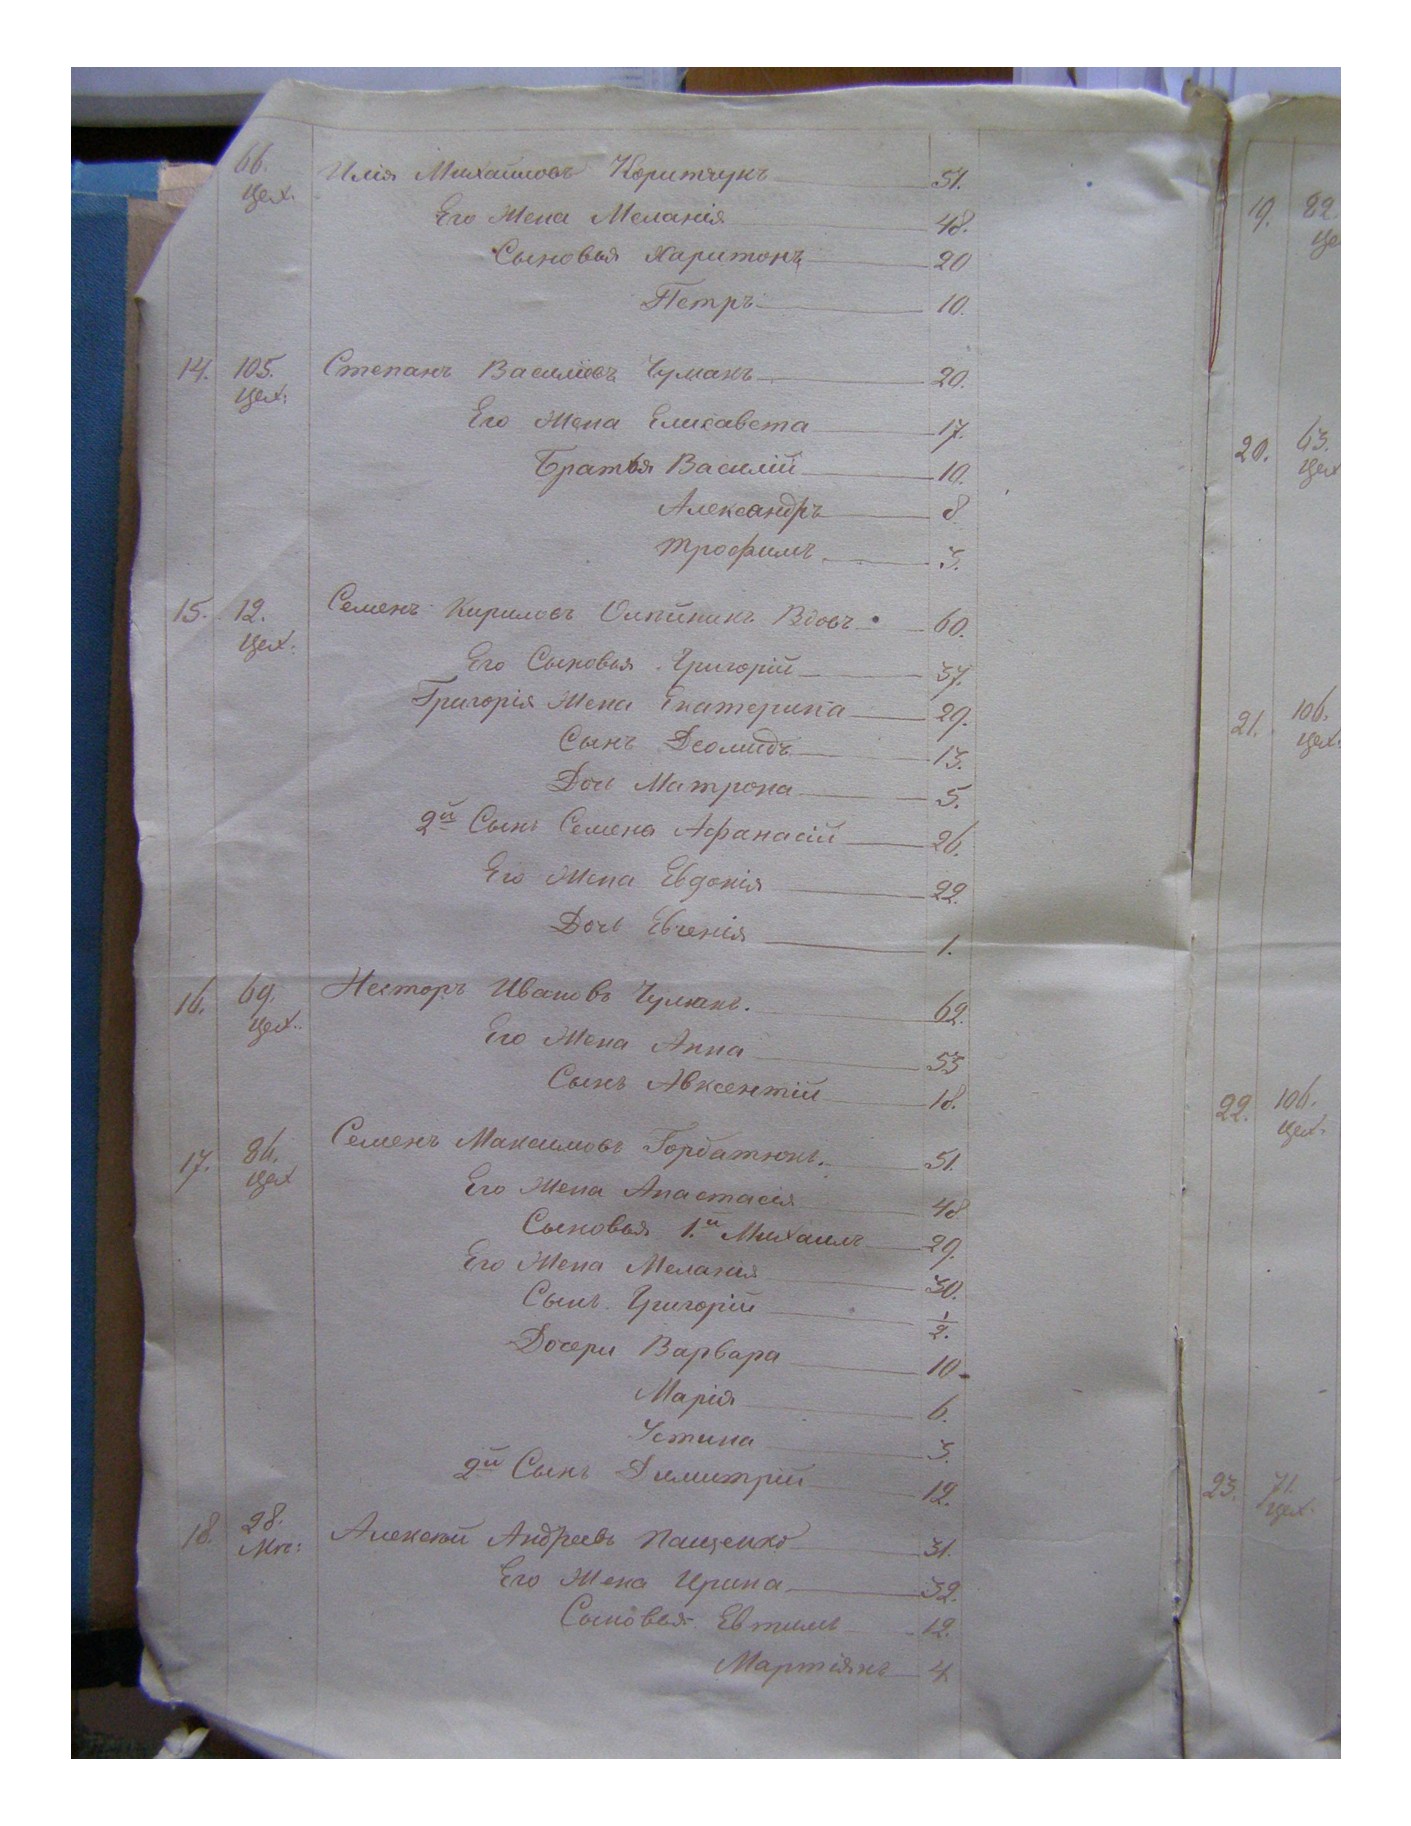 66. Илія Михайловъ Коритчукъ 51.
цех. Его Жена Меланія 48.
Сыновья Харитонъ 20
Петръ 10.
14. 105. Степанъ Василіовъ Чумакъ 20.
цех:
Его Жена Елисавета 17.
Братья Василій 10.
Александръ 8
Трофимъ 3.
15. 12. Семенъ Кириловъ Олѣйникъ Вдовъ 60.
цех:
Его Сыновья Григорій 37.
Григорія Жена Екатерина 29.
Сынъ Деомидъ 13.
Дочь Матрона 5.
2й Сынъ Семена Афанасій 26.
Его Жена Евдокія 22.
Дочь Евгенія 1.
16. 69. Несторъ Ивановъ Чумакъ. 62.
цех.
Его Жена Анна 53
Сынъ Авксентій 18.
17. 86. Семенъ Максимовъ Горбатюкъ. 51.
цех
Его Жена Анастасія 48
Сыновья 1.й Михаилъ 29.
Его Жена Меланія 30.
Сынъ Григорій 1/2.
Дочери Варвара 10
Марія 6.
Устина 3.
2й Сынъ Димитрій 12.
18. 28. Алексѣй Андреевъ Пащенко 31.
Его Жена Ирина 32.
Сыновья Евтимъ 12.
Мартіянъ 4.
19. 82.
це
20. 63.
цех
21. 106.
цех.
22. 106.
цех.
23. 71.
цех.